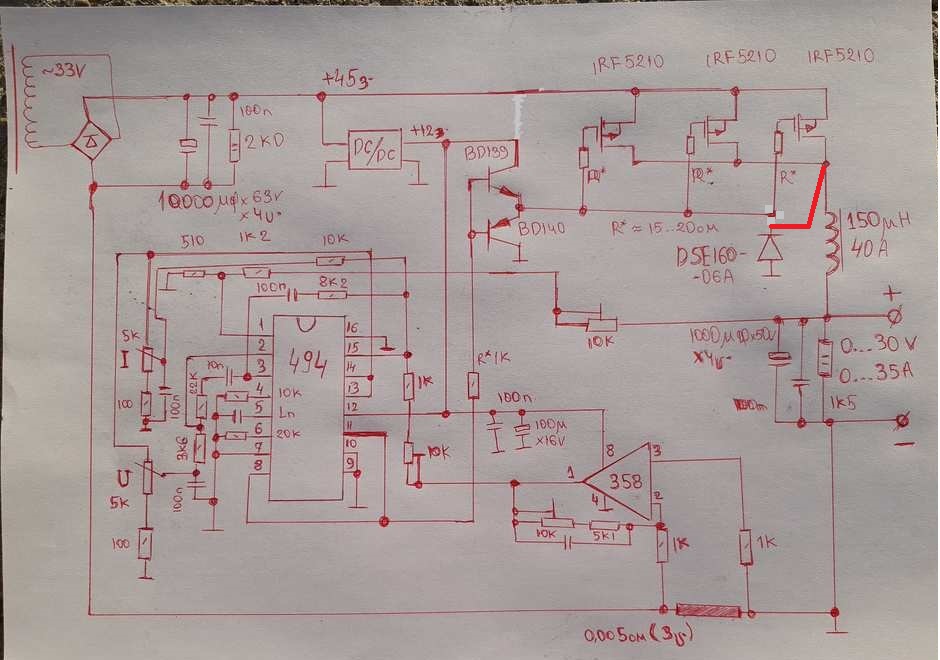 ~33V
+45в
IRF5210 IRF5210 IRF5210
100n
2KΩ
DC/DC
+12в
BD139
BD140
R* R* R*
R* ≈ 15...20ом
10,000 µф x 63v
x 4шт
150µH
40A
DSEI60-
-06A
510 1K2 10K
100n 8K2
5K
I
100
100n
22K
10n
3K6
U
5K
100n
100
1
2
3
4
5
6
7
8
494
16
15
14
13
12
11
10
9
10K
1n
20K
1K
10K
R*1K
100n
100µ
x16V
10K
1000µФx50v
x4шт
+
0...30V
0...35A
1K5
−
8
1
3
358
4
2
10K
5K1
1K
1K
0,005ом (3шт)